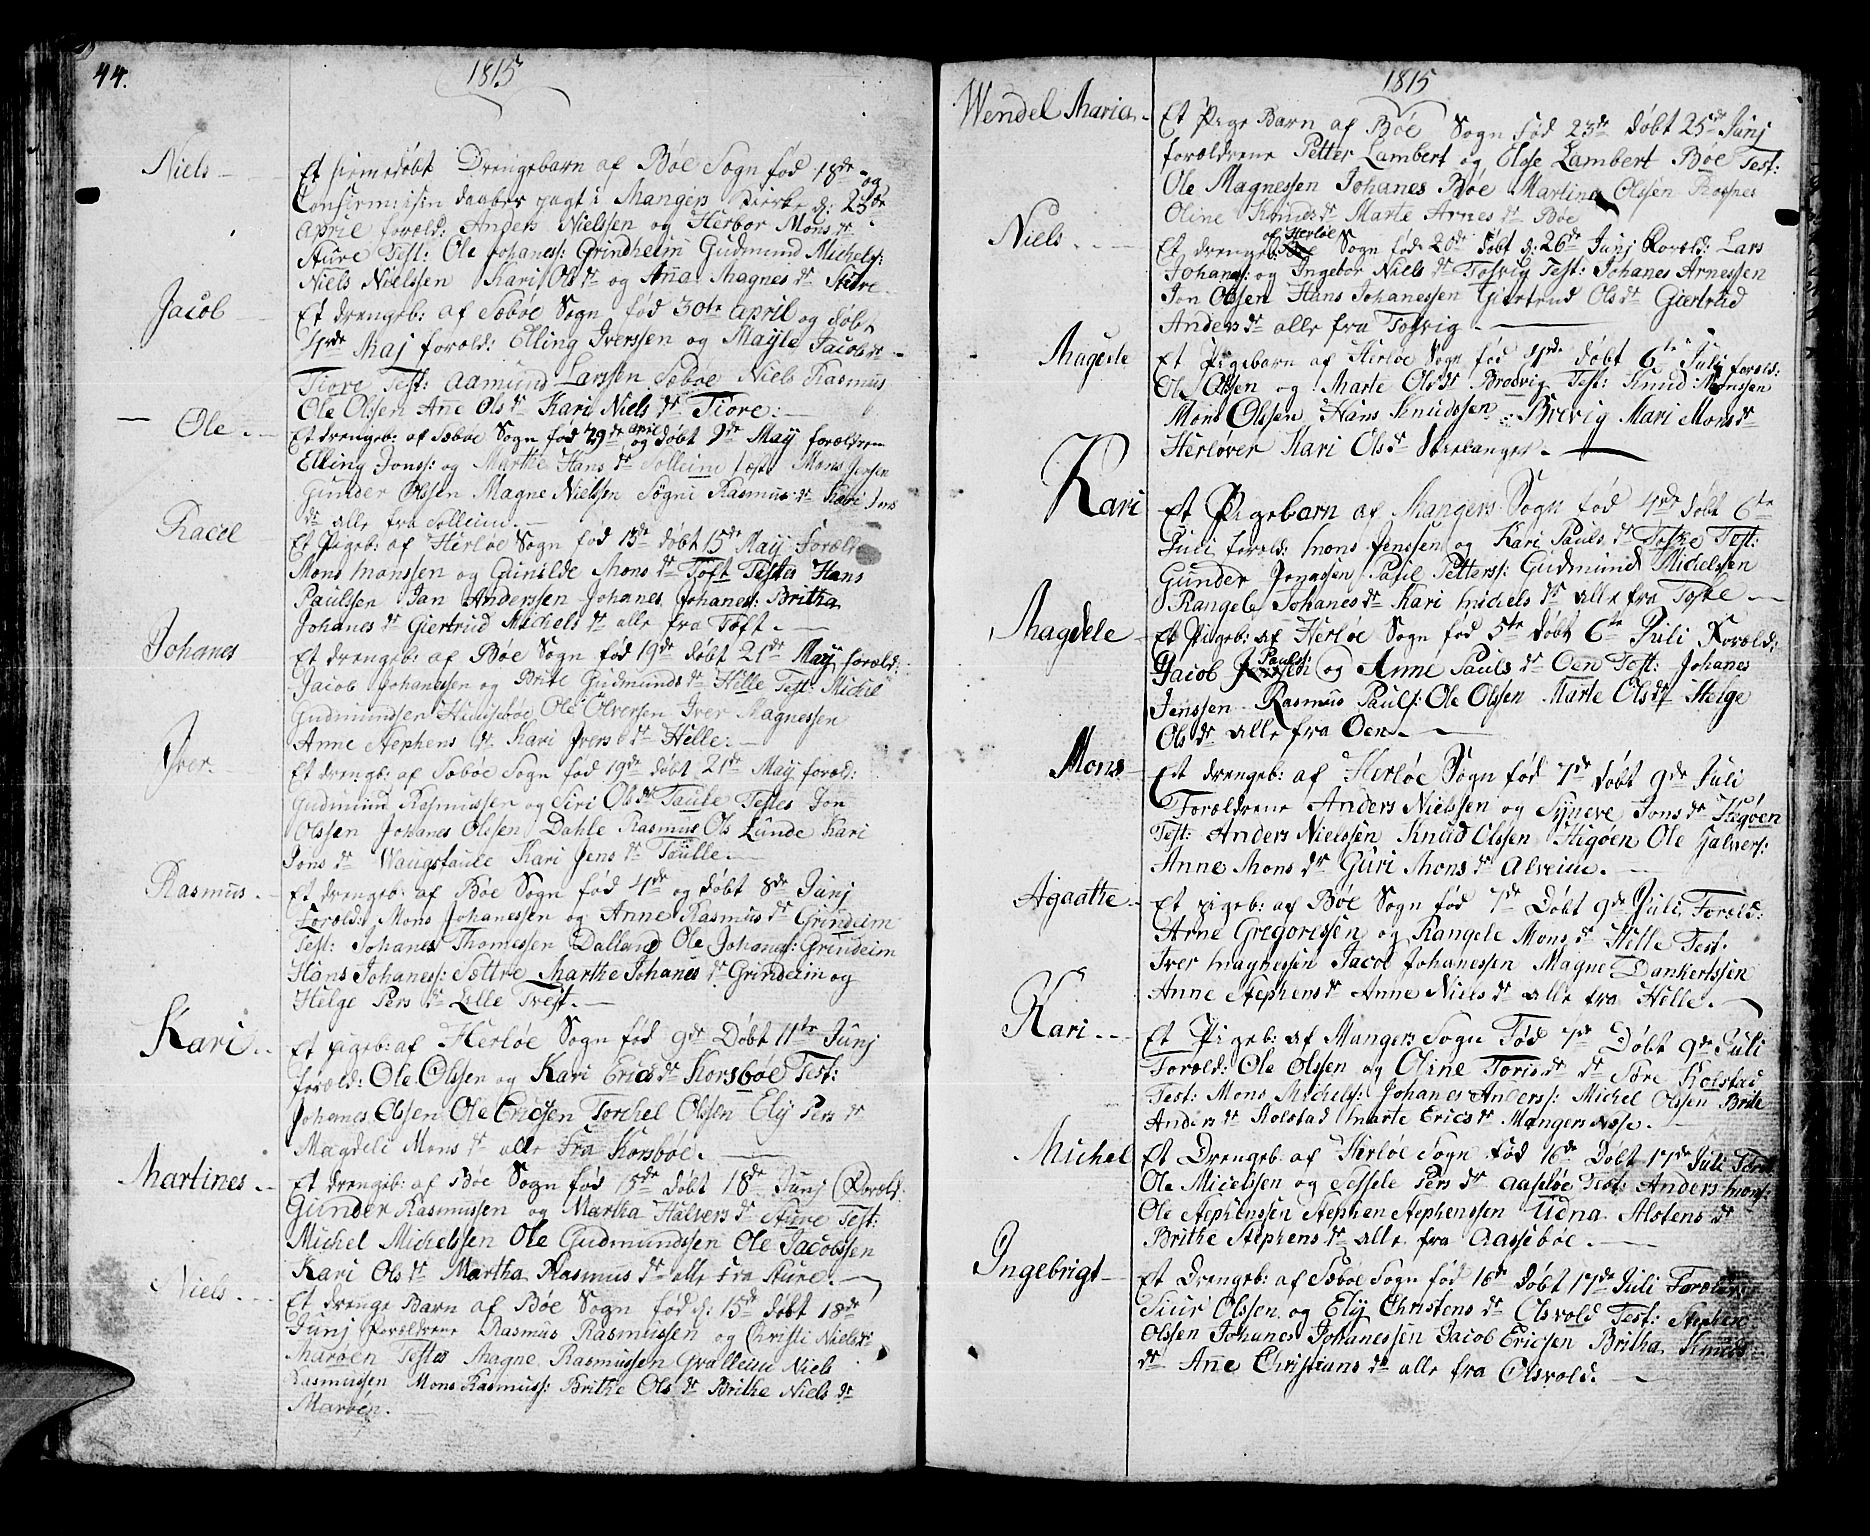 44.
1815
Niels
Et hiemedøbt Drengebarn af Bøe Sogn fød 18de og
Confirm: i sin daaben pagt i Mangers Kierke d: 23de
April foræld: Anders Nielssen og Herbor Mons dr
Sture Test: Ole Johaness: Grindheim Gudmund Michels:
Niels Nielssen Kari Ols dr og Anna Magnes dr Sture
Jacob
Et drengeb: af Sæbøe Sogn fød 30te April og døbt
Maj foræld: Elling Iverssen og Maÿle Jacobs dr
Tiore Test: Aamund Larssen Sæbøe Niels Rasmus
Ole Olssen Anne Ols dr Kari Niels dr Tiore:
Ole
Et drengeb: af Sæbøe Sogn fød 29de April og døbt May forældren
Elling Jonss: og Marthe Hans dr Solleim Test Mons Jensen
Gunder Olssen Magne Nielssen Søgni Rasmus dr Kari Jens
dr alle fra Solleim.
Racel
Et Pigeb: af Herløe Sogn fød 13de døbt 15de May Foræld
Mons Monssen og Gunilde Mons dr Toft Testes Hans
Paulssen Jan Anderssen Johanes Johanes: Britha
Johanes dr Giertrud Michels dr alle fra Toft.
Johanes
Et drengeb: af Bøe Sogn fød 19de døbt 21de May foræld:
Jacob Johanessen og Brite Gudmunds dr Hille Test: Michel
Gudmundsen Husebøe Ole Olversen Iver Magnessen
Anne Stephens dr Kari Ivers dr Helle.
Iver.
Et drengb: af Sæbøe Sogn fød 19de døbt 21de May foræld:
Gudmund Rasmussen og Siri Ols dr Taule Testes Jon
Olssen Johanes Olssen Dahle Rasmus Ols Lunde Kari
Jons dr Waugstaule Kari Jens dr Taulle.
Rasmus.
Et drengeb: af Bøe Sogn fød 4de og døbt 8de Junj
Foræld: Mons Johanessen og Anne Rasmus dr Grindeim
Test: Johanes Thomessen Dalland Ole Johans: Grindeim
Hans Johaness: Sættre Marthe Johanes dr Grindeim og
Helge Pers dr Lille Tvest.
Kari
Et pigeb: af Herløe Sogn fød 9de Døbt 11te Junj
foræld: Ole Olssen og Kari Erics dr Korsbøe Test:
Johanes Olssen Ole Ericsen Torchel Olssen Elÿ Pers dr
Magdeli Mons dr alle Fra Korsbøe.
Martines
Et drengeb: af Bøe Sogn fød 15de døbt 18de Junj Foræld:
Gunder Rasmussen og Martha Halvers dr Sture Test:
Michel Michelssen Ole Gudmundssen Ole Jacobssen
Kari Ols dr Martha Rasmus dr alle Fra Sture.
Niels
Et drenge Barn af Bøe Sogn fød d: 15de døbt 18de
Junj Forældrene Rasmus Rasmussen og Christi Niels dr
Marøen Testes Magne Rasmussen Qvalleim Niels
Rasmussen Mons Rasmuss: Brithe Ols dr Brithe Niels dr
Marøen.
1815
Wendel Maria
Et Pige Barn af Bøe Sogn fød 23de døbt 25de Junj
forældrene Petter Lambert og Elsse Lambert Bøe Test:
Ole Magnessen Johanes Bøe Martina Olssen Rossnes
Oline Knuds dr Marte Arnes dr Bøe
Niels
Et drengeb: af Herløe Sogn fød 20de døbt d: 26de Junj Foræld: Lars
Johans: og Ingebor Niels dr Tosvig Test: Johanes Arnessen
Jon Olssen Hans Johanessen Giertrud Ols dr Giertrud
Anders dr alle fra Tosvig.
Magele
Et Pigebarn af Herløe Sogn fød 4de døbt 6te Juli foræld:
Ole Olssen og Marte Ols dr Brodvig Test: Knud Monssen
Mons Olssen Hans Knudssen Brevig Mari Mons dr
Herløver Kari Ols dr Skielanger.
Kari
Et Pigebarn af Mangers Sogn fød 4de døbt 6te
Juli foræld: Mons Jenssen og Kari Pauls dr Toske Test:
Gunder Jonassen Paul Petterss: Gudmund Michelssen
Rangele Johanes dr Kari Michels dr alle fra Toske
Magdele
Et Pigeb: af Herløe Sogn fød 5te døbt 6te Juli Foræld:
Jacob Paulss: og Anne Pauls dr Oen Test: Johanes
Jenssen Rasmus Pauls: Ole Olssen Marte Ols dr Helge
Ols dr alle fra Oen.
Mons
Et drengeb: af Herløe Sogn fød 7de døbt 9de Juli
Forældrene Anders Nielssen og Syneve Jons dr Høgøen
Test: Anders Nielssen Knud Olssen Høgøen Ole Halvers:
Anne Mons dr Guri Mons dr Alveim.
Agaathe
Et pigeb: af Bøe Sogn fød 7de Døbt 9de Juli Foræld:
Arne Gregorissen og Rangele Mons dr Hille Test:
Iver Magnessen Jacob Johanessen Magne Dankertssen
Anne Stephens dr Anne Niels dr alle fra Hille.
Kari
Et Pigeb: af Mangers Sogn Fød 7de Døbt 9de Juli
Foræld: Ole Olssen og Oline Toris dr dr Sore Rolstad
Test: Mons Michels: Johanes Anderss: Michel Olssen Brite
Anders dr Rolstad Marte Erics dr Mangers Næse.
Michel
Et Drengeb. af Herløe Sogn Fød 16de Døbt 17de Juli Foræld
Ole Micelssen og Sessele Pers dr Aasebøe Test: Anders Mons:
Ole Stephenssen Stephen Stephenssen Udna Alstens dr
Brithe Stephens dr alle fra Aassebøe.
Ingebrigt
Et Drengeb: af Sæbøe Sogn fød 16de døbt 17de Juli Forældre:
Siur Olssen og Elÿ Christens dr Olsvold Test: Stephen
Olssen Johanes Johanessen Jacob Ericsen Britha Knuds
dr Anne Christians dr alle fra Olsvold.